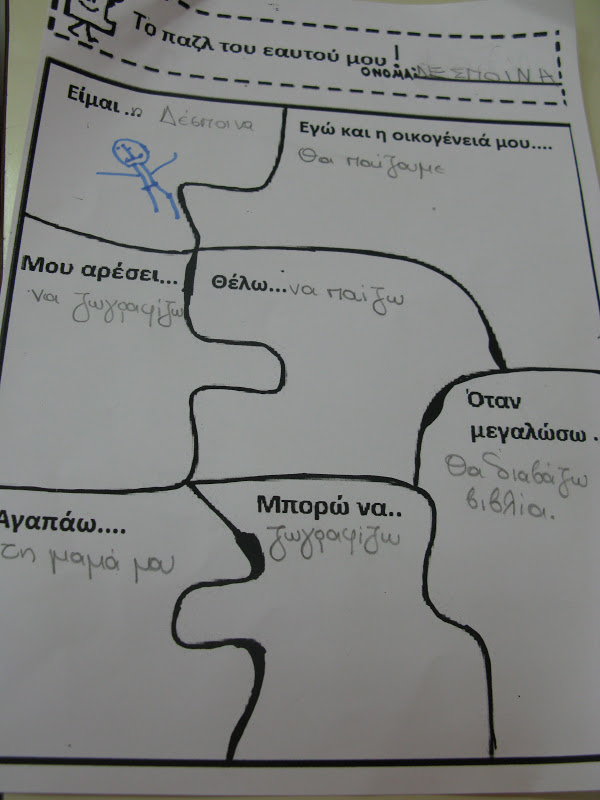 Το παζλ του εαυτού μου!
ΟΝΟΜΑ: ΔΕΣΠΟΙΝΑ
Είμαι..η Δέσποινα
Εγώ και η οικογένειά μου....
Θα παίζουμε
Μου αρέσει...
να ζωγραφίζω
Θέλω...να παίζω
Όταν
μεγαλώσω .
Θα διαβάζω
βιβλία.
Αγαπάω....
τη μαμά μου
Μπορώ να..
ζωγραφίζω